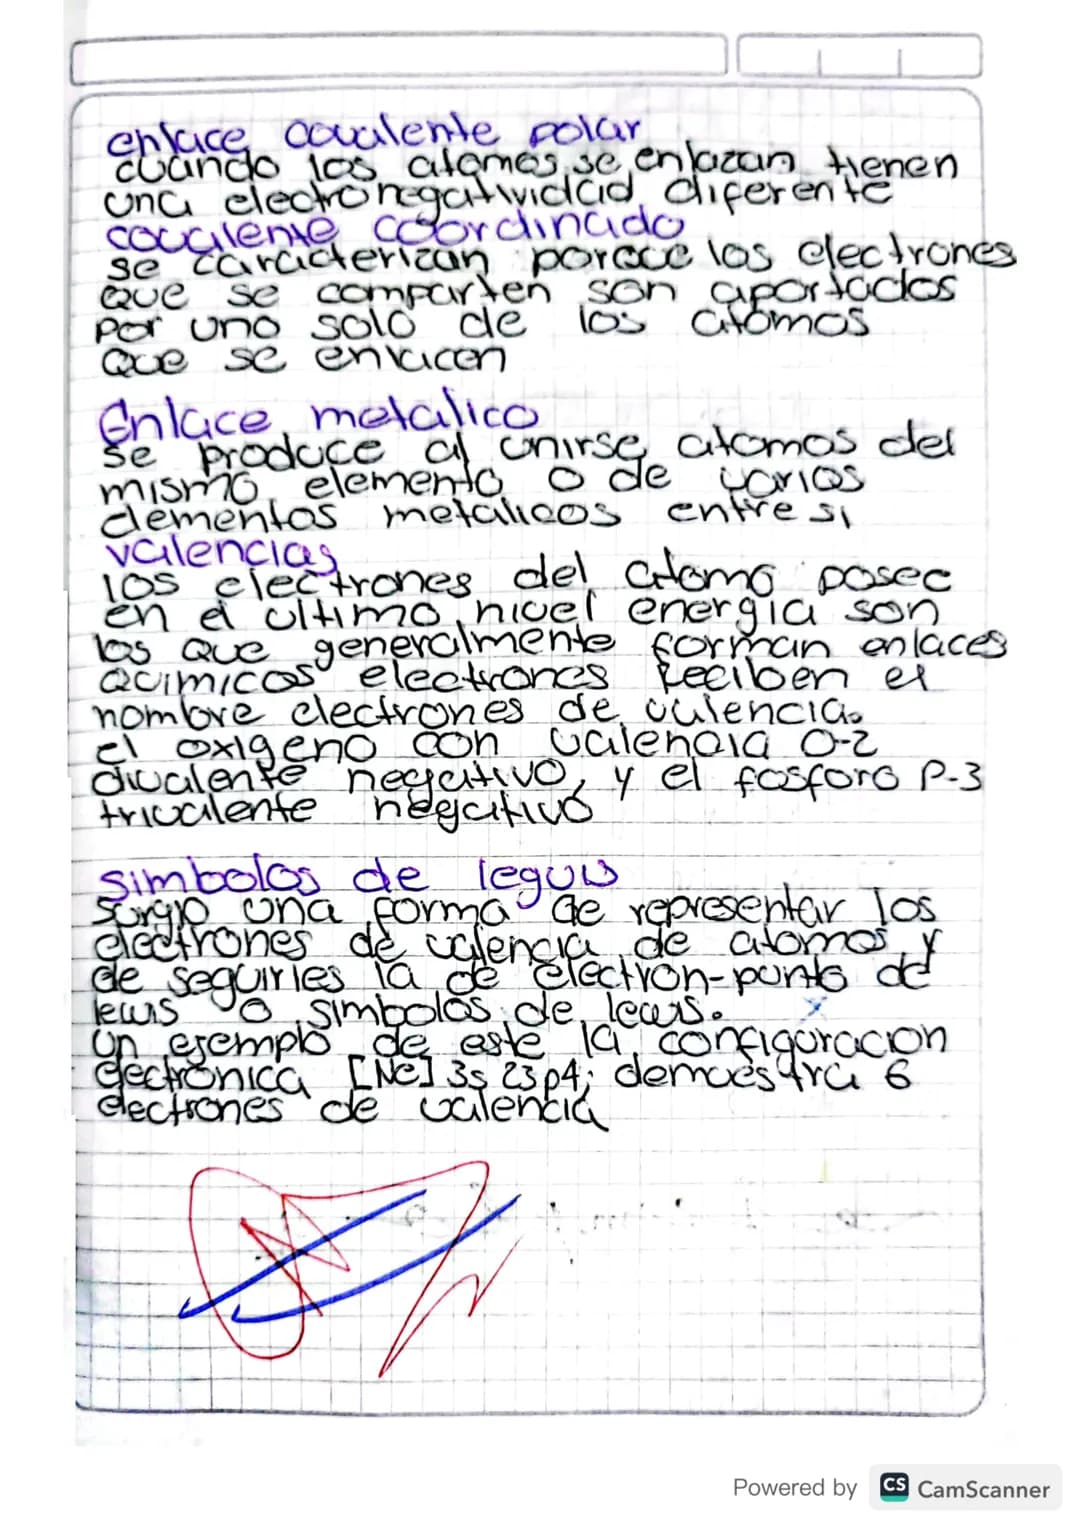 enlace covalente polar
cuando los atomos se enlazan tienen
una electronegatividad diferente
covalente coordinado
se caracterizan porque los electrones
que se comparten son aportados
por uno solo de los atomos
que se enlacen
Enlace metalico
se produce al unirse atomos del
mismo elemento o de varios
elementos metalicos entre si
valencias
los electrones del atomo posee
en el ultimo nivel energia son
los que generalmente forman enlaces
quimicos electrones reciben el
nombre electrones de valencia.
el oxigeno con valencia O-2
divalente negativo, y el fosforo P-3
trivalente negativo
simbolos de leguis
surgio una forma de representar los
electrones de valencia de atomos y
de seguirles la de electron-punto del
lewis o simbolos de lewis.
un ejemplo de este la configuracion
electronica [Ne] 3s 23p4; demuestra 6
electrones de valencia
Powered by CS CamScanner